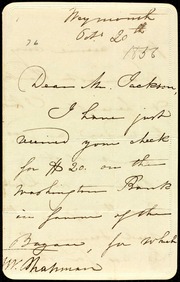 Weymouth
Oct 20th
1856
Dear Mr. Jackson,
I have just
received your check
for $20. on the
Washington Bank
in favour of the
Bazaar, for which
W. Chapman